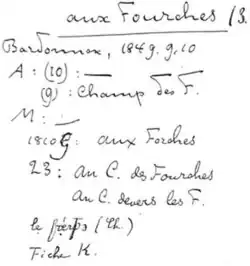 aux Fourches /3.
Bardonnex, 1849.9.10
A : (10) : —
(9) : Champ des F.
M : —
18106 : aux Forches
23 : au C. des Fourches
au C. devers les F.
le (Ch.)
Fiche K.